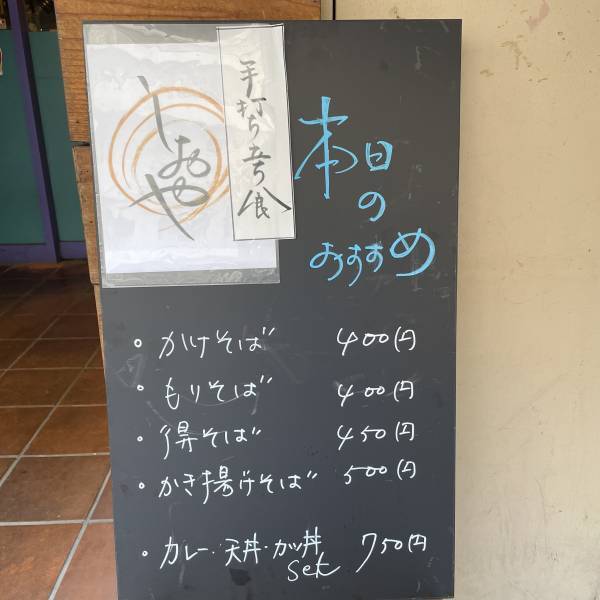 しおや
手打ち蕎麦
本日
の
おすすめ
・かけそば 400円
・もりそば 400円
・得そば 450円
・かき揚げそば 500円
・カレー・天丼・カツ丼 750円
set